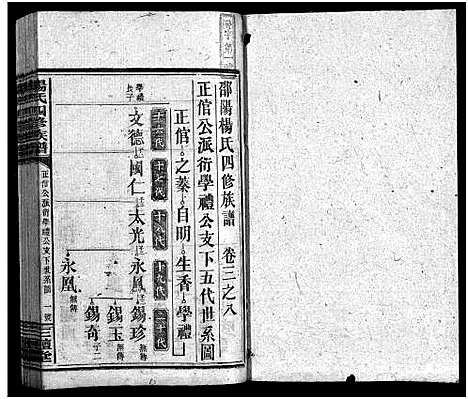 邵陽楊氏四修族譜 卷三之八
正信公派衍學禮公支下五代世系圖
正信 之蓁 自明 生香 學禮
十六代 十七代 十八代 十九代 二十代
學禮長子
文德 國仁 太光 永鳳 錫珍 無傳
錫玉 無傳
錫奇 子二
永凰 無傳
楊氏四修族譜 正信公派衍學禮公支下世系圖 一號